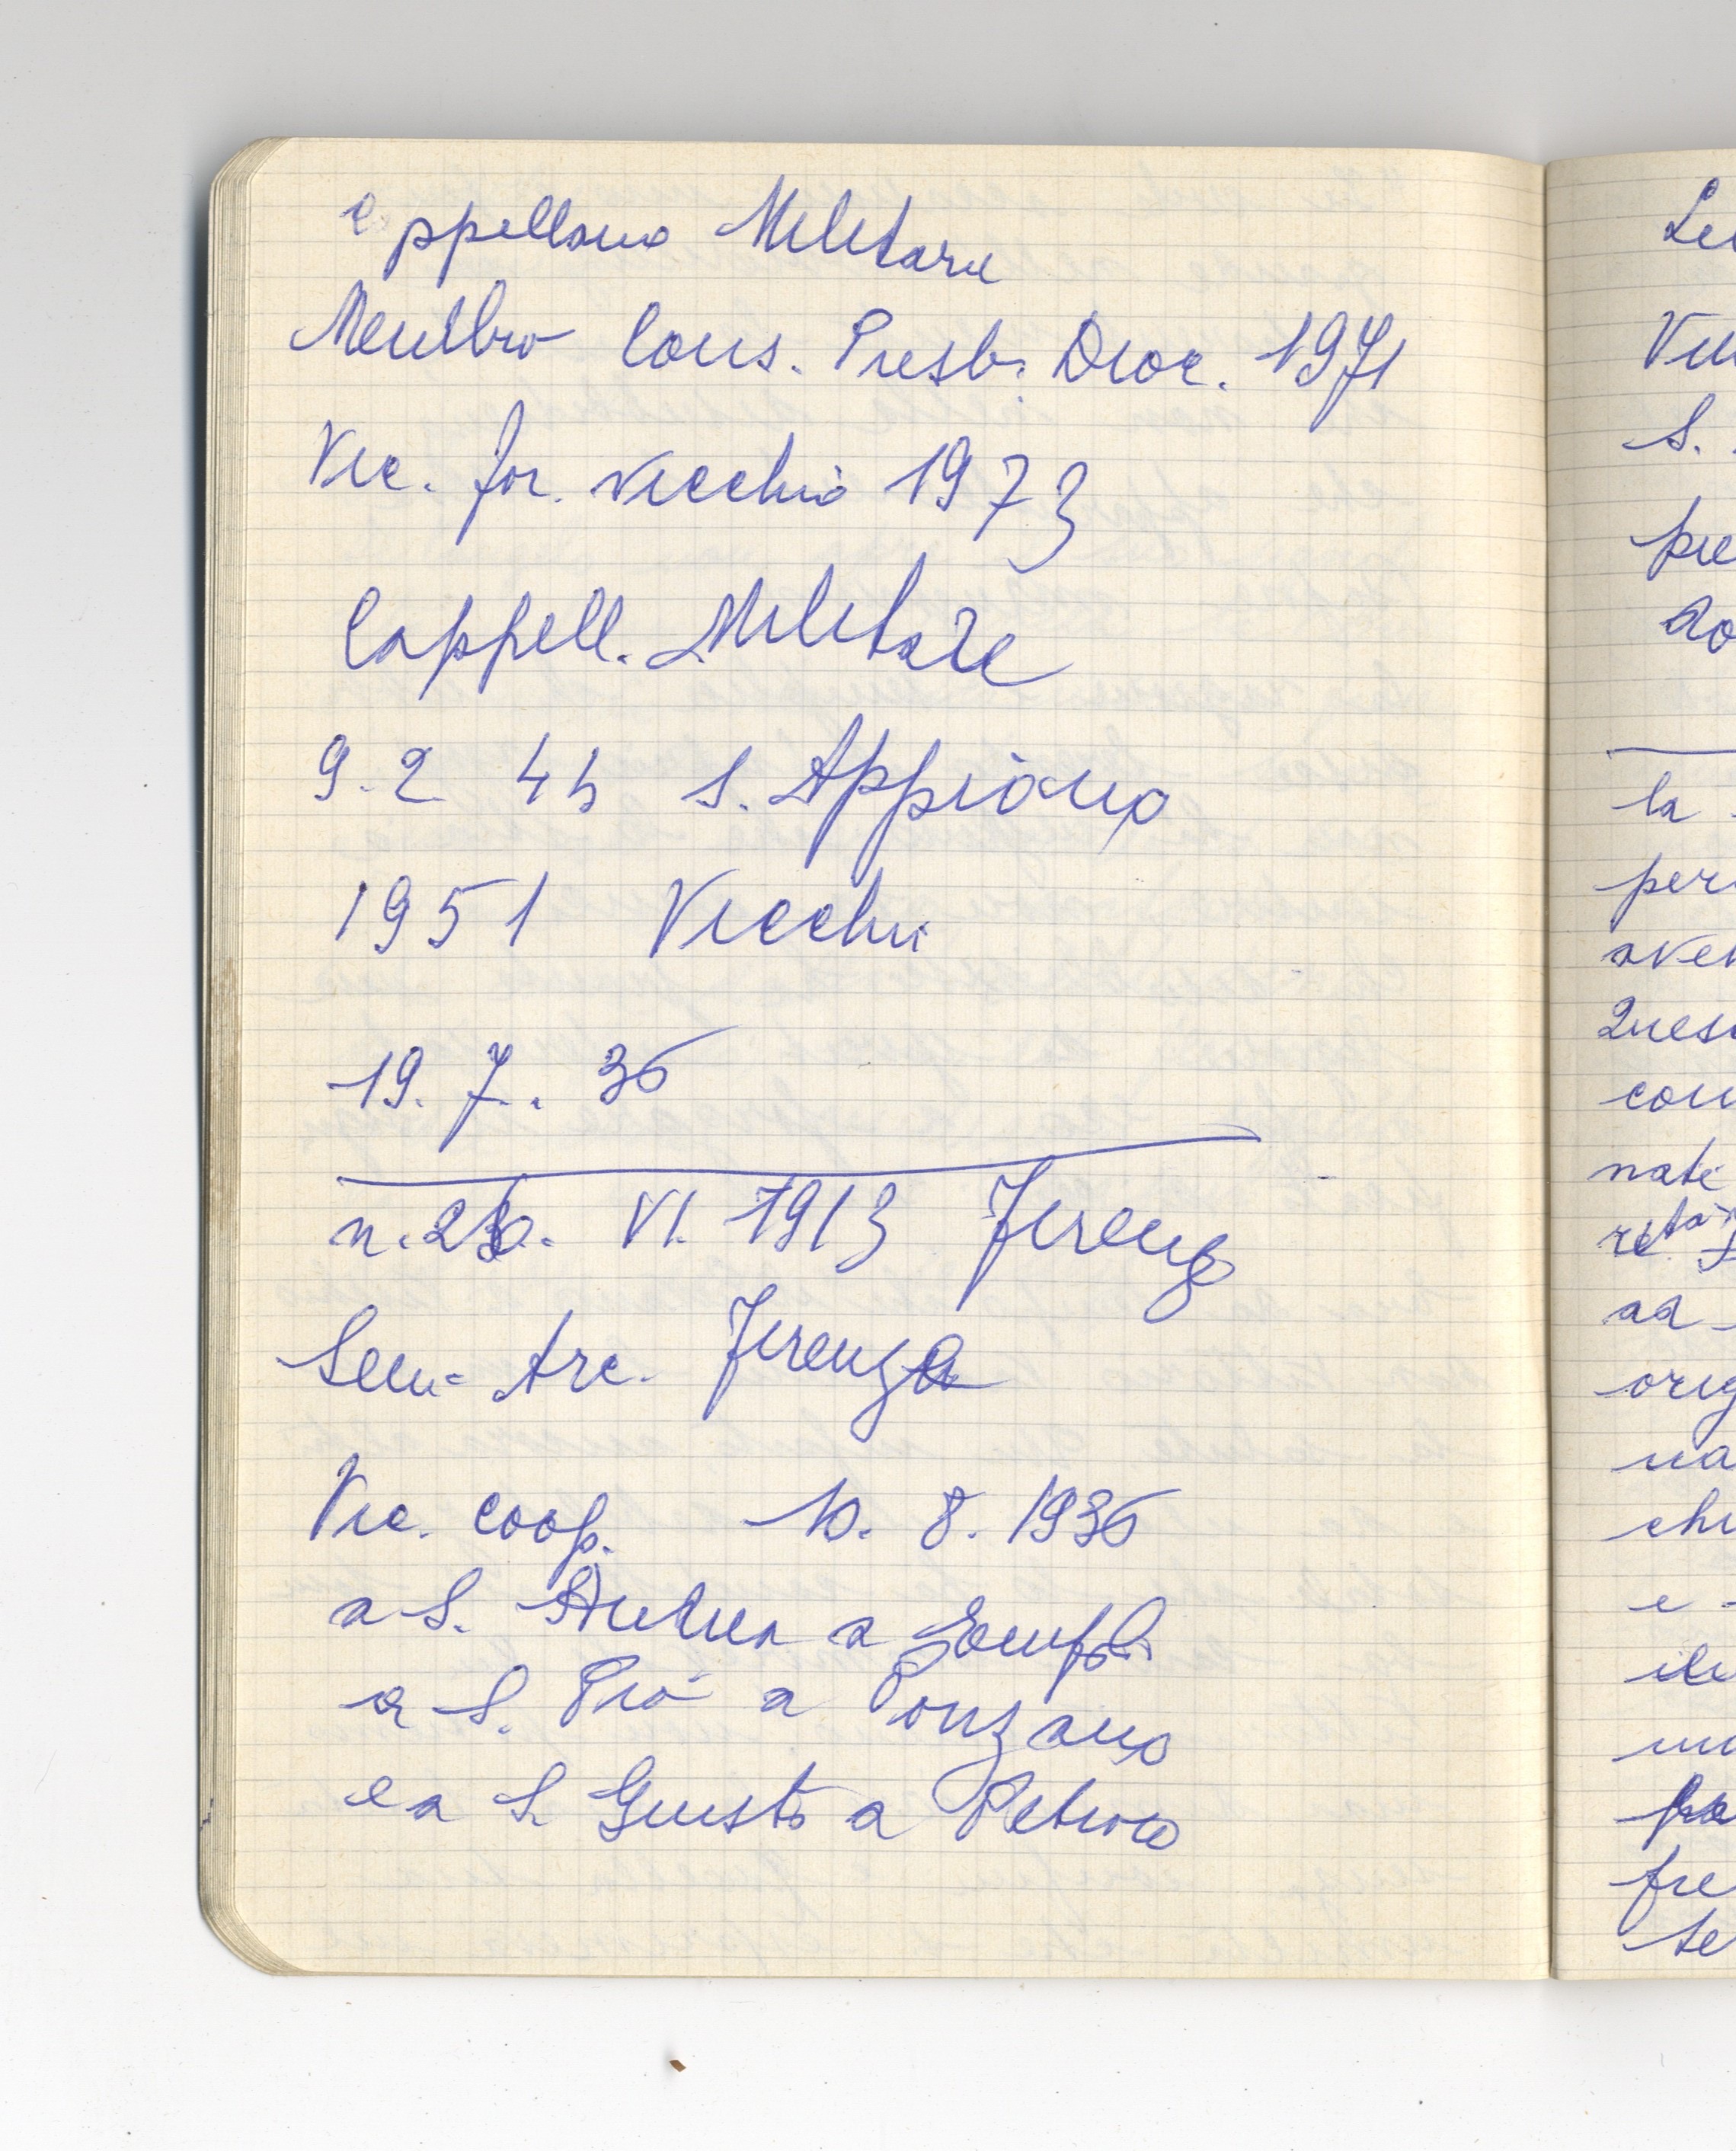 Cappellano Militare
Membro Cons. Presb. Dioc. 1971
Vic. for. Vicchio 1973
Cappell. Militare
9. 2 45 S. Appiano
1951 Vicchio
19. 7. 36
n. VI. 1913 Firenze
Sem. Arc. Firenze
Vic. coop. 10. 8. 1936
a S. Andrea a
a S. Piò a Ponzano
e a S. Giusto a Petroio
Vic
S.
pie
la
per
aven
Ques
con
nate
ad
orig
na
chi
e
fre
te